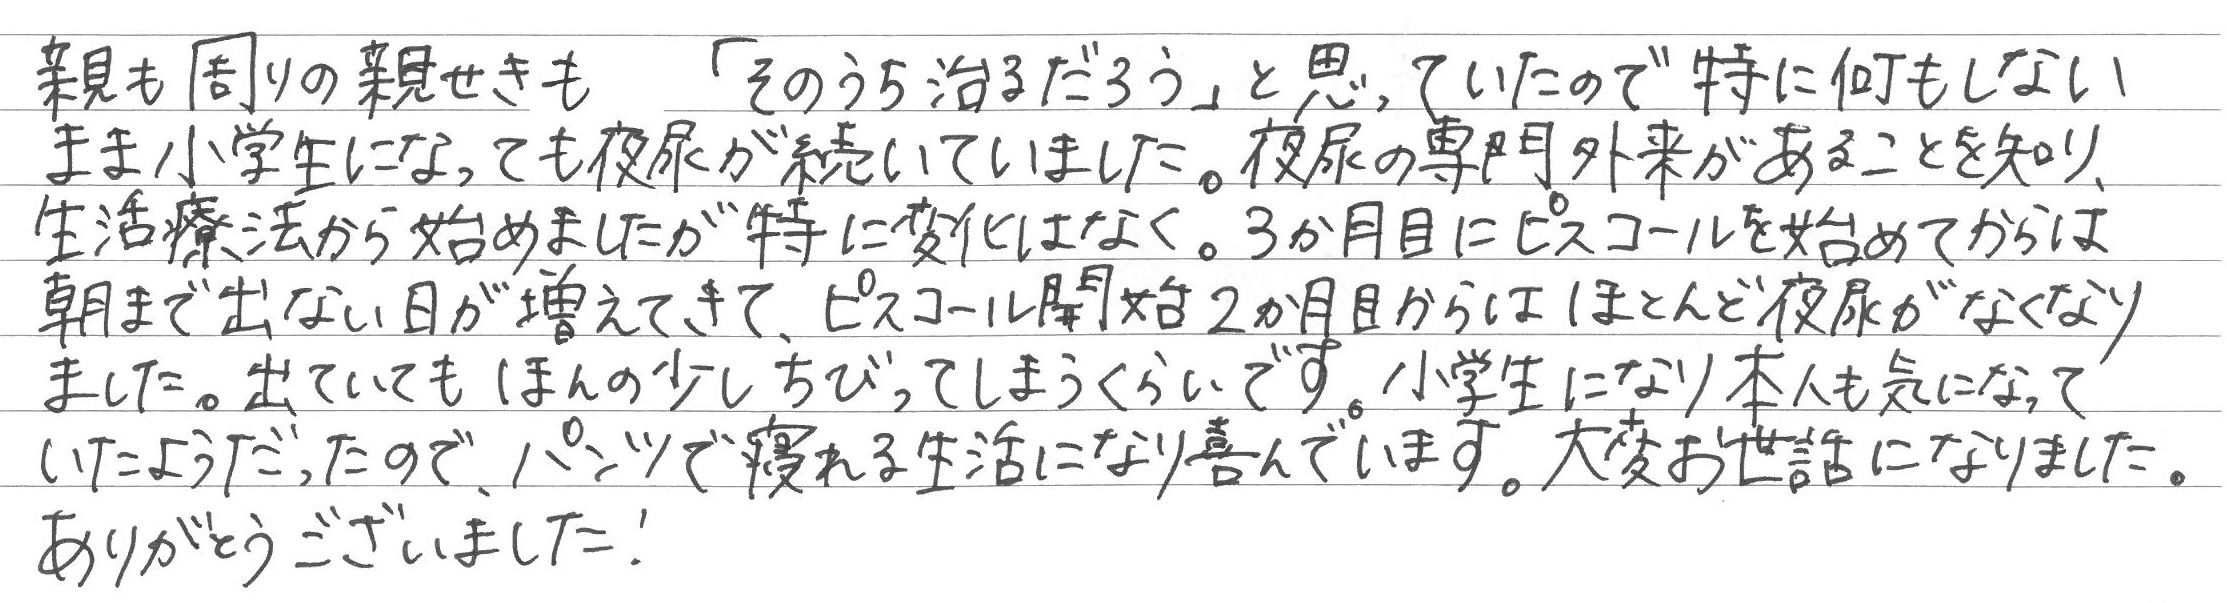 親も周りの親せきも 「そのうち治るだろう」と思っていたので特に何もしない
まま小学生になっても夜尿が続いていました。夜尿の専門外来があることを知り、
生活療法から始めましたが特に変化はなく。3か月目にピスコールを始めてからは
朝まで出ない日が増えてきて、ピスコール開始2か月目からはほとんど夜尿がなくなり
ました。出ていてもほんの少しちびってしまうくらいです。小学生になり本人も気になって
いたようだったので、パンツで寝れる生活になり喜んでいます。大変お世話になりました。
ありがとうございました!